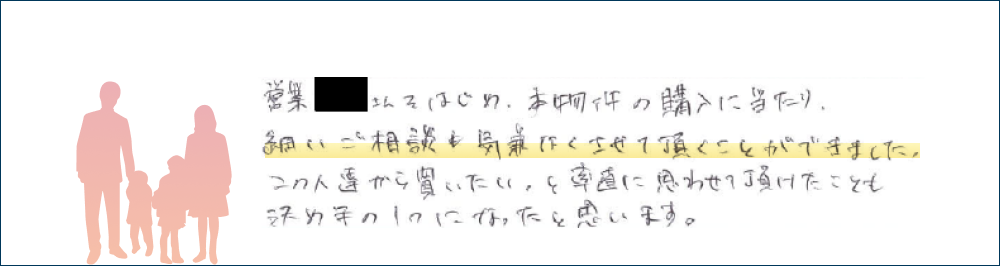 営業 さんをはじめ、本物件の購入に当たり、
細いご相談も気兼なくさせて頂くことができました。
この人達から買いたい、と率直に思わせて頂けたことも
決め手の1つになったと思います。